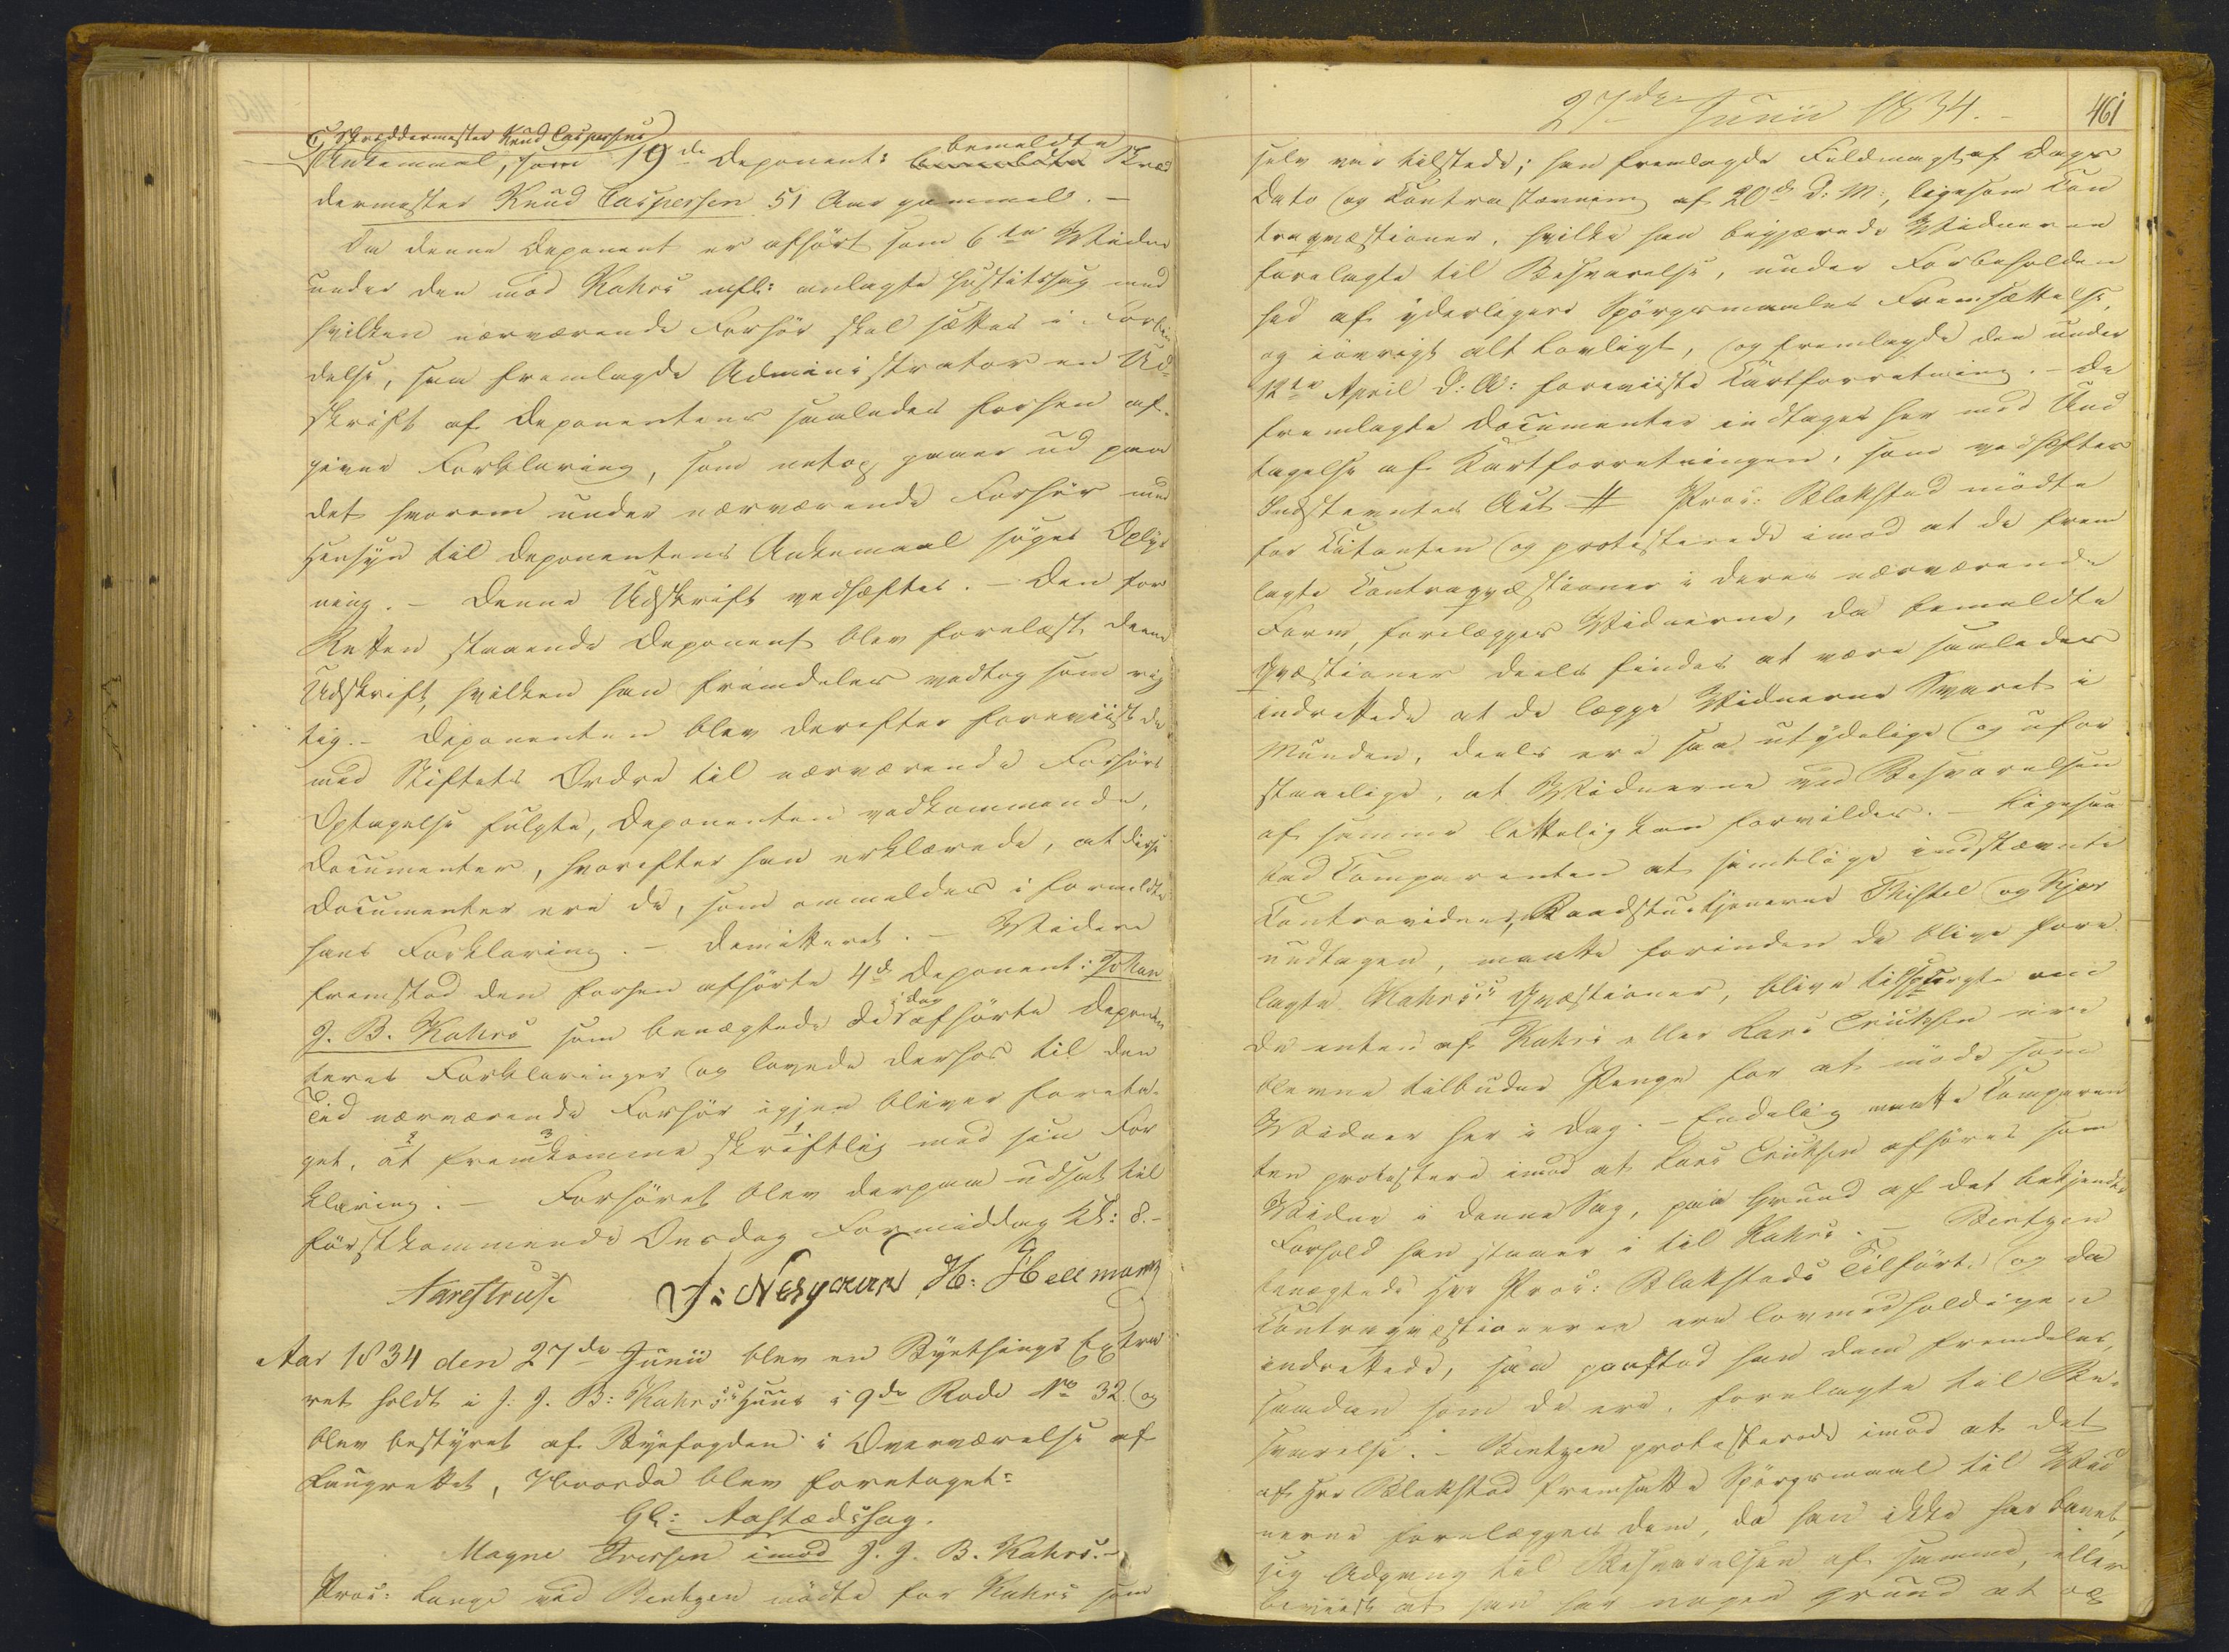 Skræddermester Knud Caspersens
Ankemaal, som 19de Deponent: bemeldte bemeldte Skræd
dermester Knud Caspersen 51 Aar gammel. –
Da denne Deponent er afhørt som 6te Vidne
under den mod Kahrs mfl: anlagte Justitssag med
hvilken nærværende Forhør skal sættes i Forbin
delse, saa fremlagde Administrator en Ud-
skrift af Deponentens saaledes forhen af-
givne Forklaring, som netop gaaer ud paa
det hvorom under nærværende Forhør med
Hensyn til Deponentens Ankemaal søges Oplys
ning. – Denne Udskrift vedhæftes. – Den for
Retten staaende Deponent blev forelæst denne
Udskrift, hvilken han fremdeles vedtog som rig
tig. – Deponenten blev derefter foreviist de
med Stiftets Ordre til nærværende Forhørs
Optagelse fulgte, Deponenten vedkommende,
Documenter, hvorefter han erklærede, at disse
Documenter ere de, som ommeldes i formeldte
hans Forklaring. – Demitteret. – Videre
fremstod den forhen afhørte 4de Deponent: Johan
J. B. Kahrs som benægtede de i dag afhørte Deponen
ters Forklaringer og lovede derhos til den
Tid nærværende Forhør igjen bliver foreta-
get, at fremkomme skriftlig med sin For
klaring. – Forhøret blev derpaa udsat til
førstkommende Onsdag Formiddag Kl: 8. –
Aarestrup. J: Neszmann H: Hellmann
Aar 1834 den 27de Junii blev en Byethings Extra
ret holdt i J. J. B: Kahrs's Huus i 9de Rode No 32 og
blev bestyret af Byefogden i Overværelse af
Laugrettet, Hvorda blev foretaget:
Gl: Aastædssag.
Magne Iversen imod J. J. B. Kahrs. –
Proc: Lange ved Bentzen mødte for Kahrs som
27de Junii 1834. –
461
selv var tilstede; han fremlagde Fuldmagt af Dags
Dato og Contrastævning af 20de d: M:, ligesom Con
traqvæstioner, hvilke han begjærede Vidnerne
forelagte til Besvarelse, under Forbeholden
hed af yderligere Spørgsmaales Fremsættelse,
og iøvrigt alt lovligt, og fremlagde den under
12te April d: A: foreviiste Kartforretning. – De
fremlagte Documenter indtages her med Und
tagelse af Kartforretningen, som vedhæftes
Indstevntes Act # Proc: Blakstad mødte
for Citanten og protesterede imod at de frem
lagte Contraqvæstioner i deres nærværende
Form, forelægges Vidnerne, da bemeldte
Qvæstioner deels findes at være saaledes
indrettede at de lægge Vidnerne Svaret i
Munden, deels ere saa utydelige og ufor
staaelige, at Vidnerne ved Besvarelsen
af samme lettelig kan forvildes. – Ligesaa
bad Comparenten at samtlige indstævnte
Contravidner, Raadstuetjenerne Thistel og Kjær
undtagen, maatte forinden de blive fore
lagte Kahrs's Qvæstioner, blive tilspurgte om
de enten af Kahrs eller Lars Erichsen ere
blevne tilbudne Penge for at møde som
Vidner her i Dag. – Endelig maatte Comparen
ten protestere imod at Lars Erichsen afhøres som
Vidne i denne Sag, paa Grund af det bekjendte
Forhold han staaer i til Kahrs. – Bentzen
benægtede Hrr Proc: Blakstads Tilført. og da
Contraqvæstionerne ere lovmedholdigen
indrettede, saa paastod han dem fremdeles,
saadan som de ere, forelagte til Be-
svarelse. – Bentzen protesterede imod at det
af Hrr Blakstad fremsatte Spørgsmaal til Vid
nerne forelægges dem, da han ikke har banet
sig Adgang til Besvarelsen af samme, eller
beviist at han har nogen Grund at op